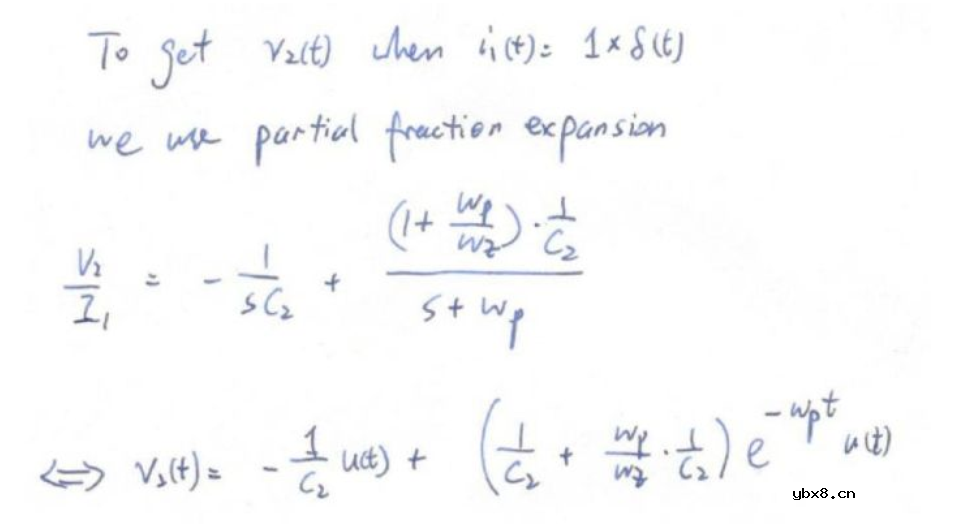 To get V₂(t) when i₁(t) = 1 × δ(t)
we use partial fraction expansion
V₂/I₁ = - 1/(sC₂) + ((1 + wp/wz) · 1/C₂)/(s + wp)
⟺ V₂(t) = - 1/C₂ u(t) + (1/C₂ + wp/wz · 1/C₂) e^(-wpt) u(t)
ybx8.cn